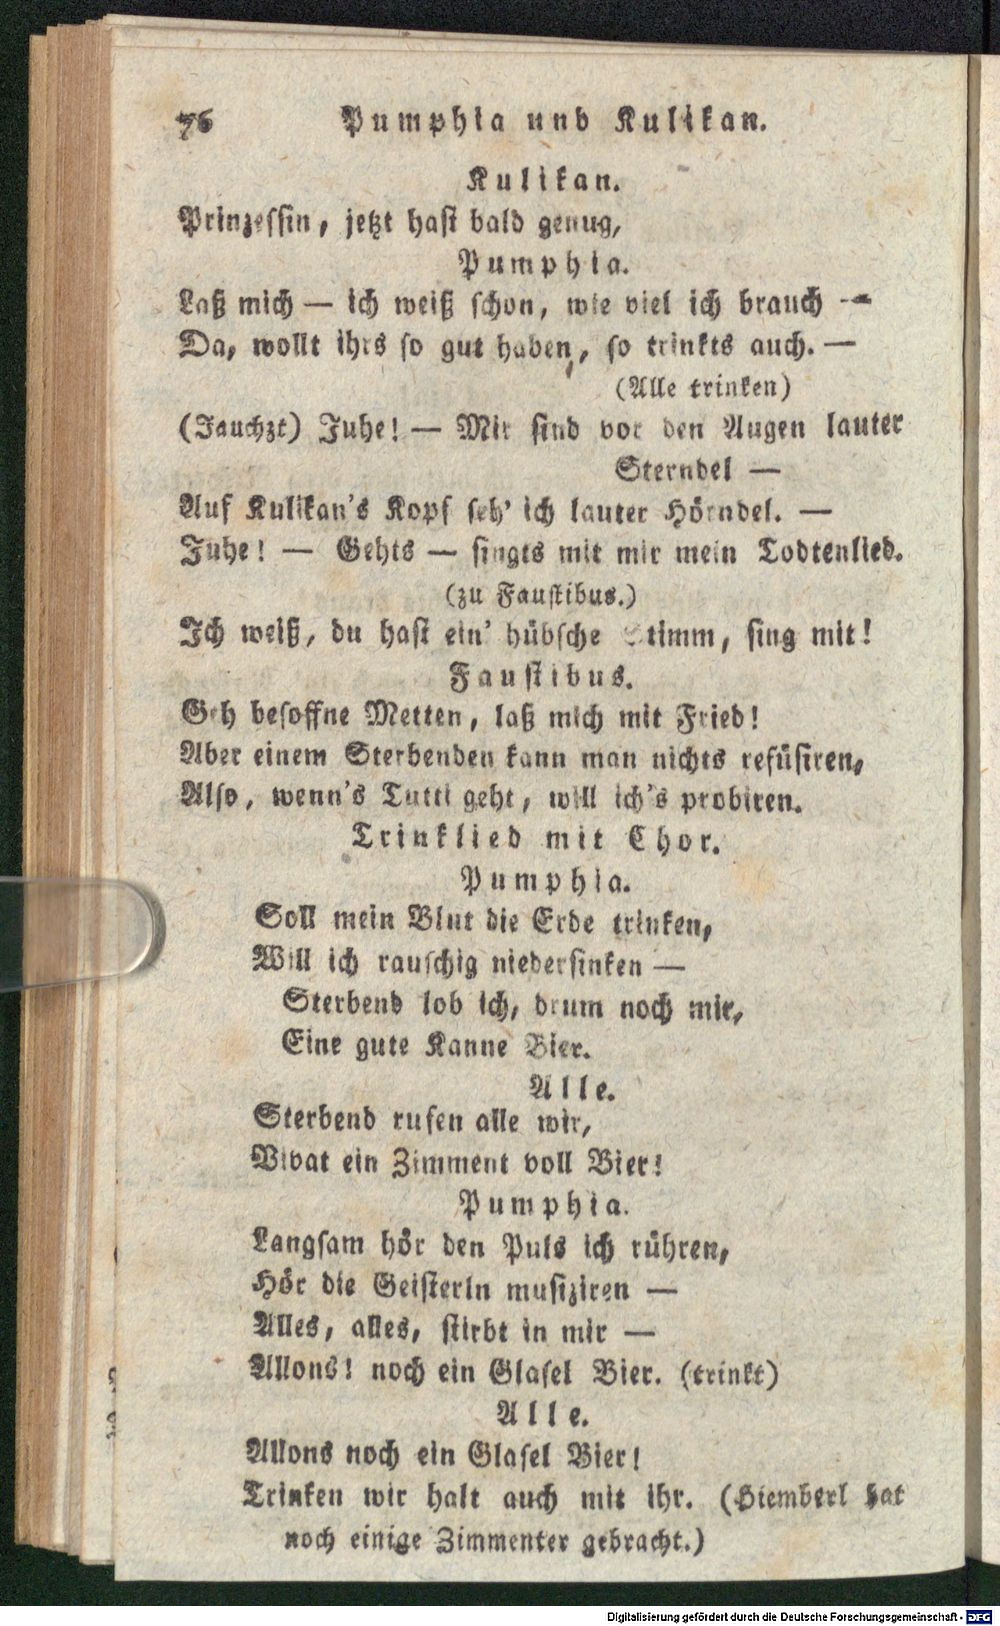 76 Pumphia und Kulikan.
Kulikan.
Prinzessin, jetzt hast bald genug,
Pumphia.
Laß mich — ich weiß schon, wie viel ich brauch —
Da, wollt ihrs so gut haben, so trinkts auch. —
(Alle trinken)
(Jauchzt) Juhe! — Mir sind vor den Augen lauter
Sterndel —
Auf Kulikan's Kopf seh' ich lauter Hörndel. —
Juhe! — Gehts — singts mit mir mein Todtenlied.
(zu Faustibus.)
Ich weiß, du hast ein' hübsche Stimm, sing mit!
Faustibus.
Geh besoffne Metten, laß mich mit Fried!
Aber einem Sterbenden kann man nichts refüsiren,
Also, wenn's Tutti geht, will ich's probiren.
Trinklied mit Chor.
Pumphia.
Soll mein Blut die Erde trinken,
Will ich rauschig niedersinken —
Sterbend lob ich, drum noch mir,
Eine gute Kanne Bier.
Alle.
Sterbend rufen alle wir,
Vivat ein Zimment voll Bier!
Pumphia.
Langsam hör den Puls ich rühren,
Hör die Geisterln musiziren —
Alles, alles, stirbt in mir —
Allons! noch ein Glasel Bier. (trinkt)
Alle.
Allons noch ein Glasel Bier!
Trinken wir halt auch mit ihr. (Hiemberl hat
noch einige Zimmenter gebracht.)
Digitalisierung gefördert durch die Deutsche Forschungsgemeinschaft - DFG